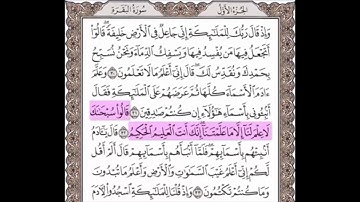 الجزء الأول سورة البقرة
وإذ قال ربك للملئكة إني جاعل في الأرض خليفة قالوا
أتجعل فيها من يفسد فيها ويسفك الدماء ونحن نسبح
بحمدك ونقدس لك قال إني أعلم ما لا تعلمون ٣٠ وعلم
ءادم الأسماء كلها ثم عرضهم على الملئكة فقال
أنبئوني بأسماء هؤلاء إن كنتم صدقين ٣١ قالوا سبحنك
لا علم لنا إلا ما علمتنا إنك أنت العليم الحكيم ٣٢ قال يئادم
أنبئهم بأسمائهم فلما أنبأهم بأسمائهم قال ألم أقل
لكم إني أعلم غيب السموت والأرض وأعلم ما تبدون
وما كنتم تكتمون ٣٣ وإذ قلنا للملئكة اسجدوا لأدم